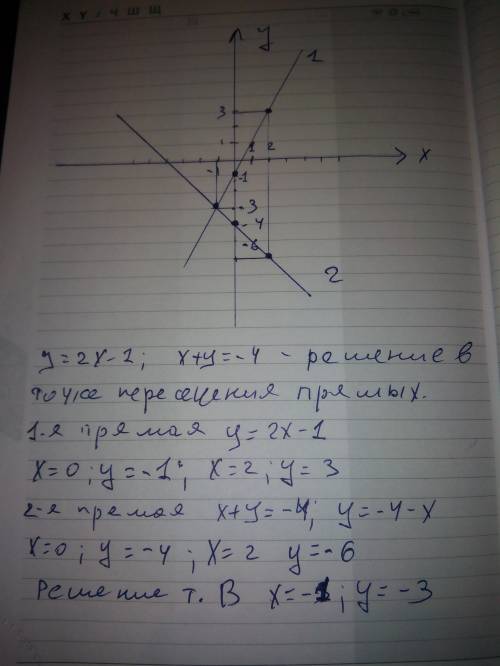 X Y Ч Ш Щ
y
1
3
1 2
x
-1
-1
-3
-4
-6
2
y=2x-1; x+y=-4 - решение в
точке пересецения прямых.
1-я прямая y=2x-1
x=0; y=-1; x=2; y=3
2-я прямая x+y=-4; y=-4-x
x=0; y=-4; x=2 y=-6
Решение т. В x=-1; y=-3